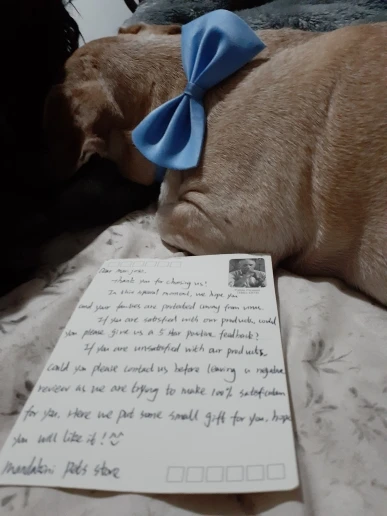 Dear
Thank you for chosing us!
In this special moment, we hope you
and your families are protected away from virus.
If you are satisfied with our products, could
you please give us a 5 star positive feedback?
If you are unsatisfied with our products,
could you please contact us before leaving a negative
review as we are trying to make 100% satisfaction
for you. Here we put some small gift for you, hope
you will like it!
pets store